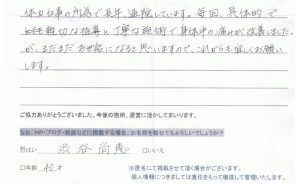 体力仕事の所為で長年、通院しています。毎回、具体的で
とても親切な指導と丁寧な施術で身体中の痛みが改善しました。
が、まだまだお世話になると思いますので、これからも宜しくお願い
します。
ご協力ありがとうございました。今後の施術、運営に活かしてまいります。
なお、HP・ブログ・紙面などに掲載する場合、お名前を載せてもよろしいでしょうか?
はい 渋谷尚 □いいえ
□年齢 40才
※匿名にて掲載させて頂く場合がございます。
個人情報につきましては責任をもって徹底して管理いたします。